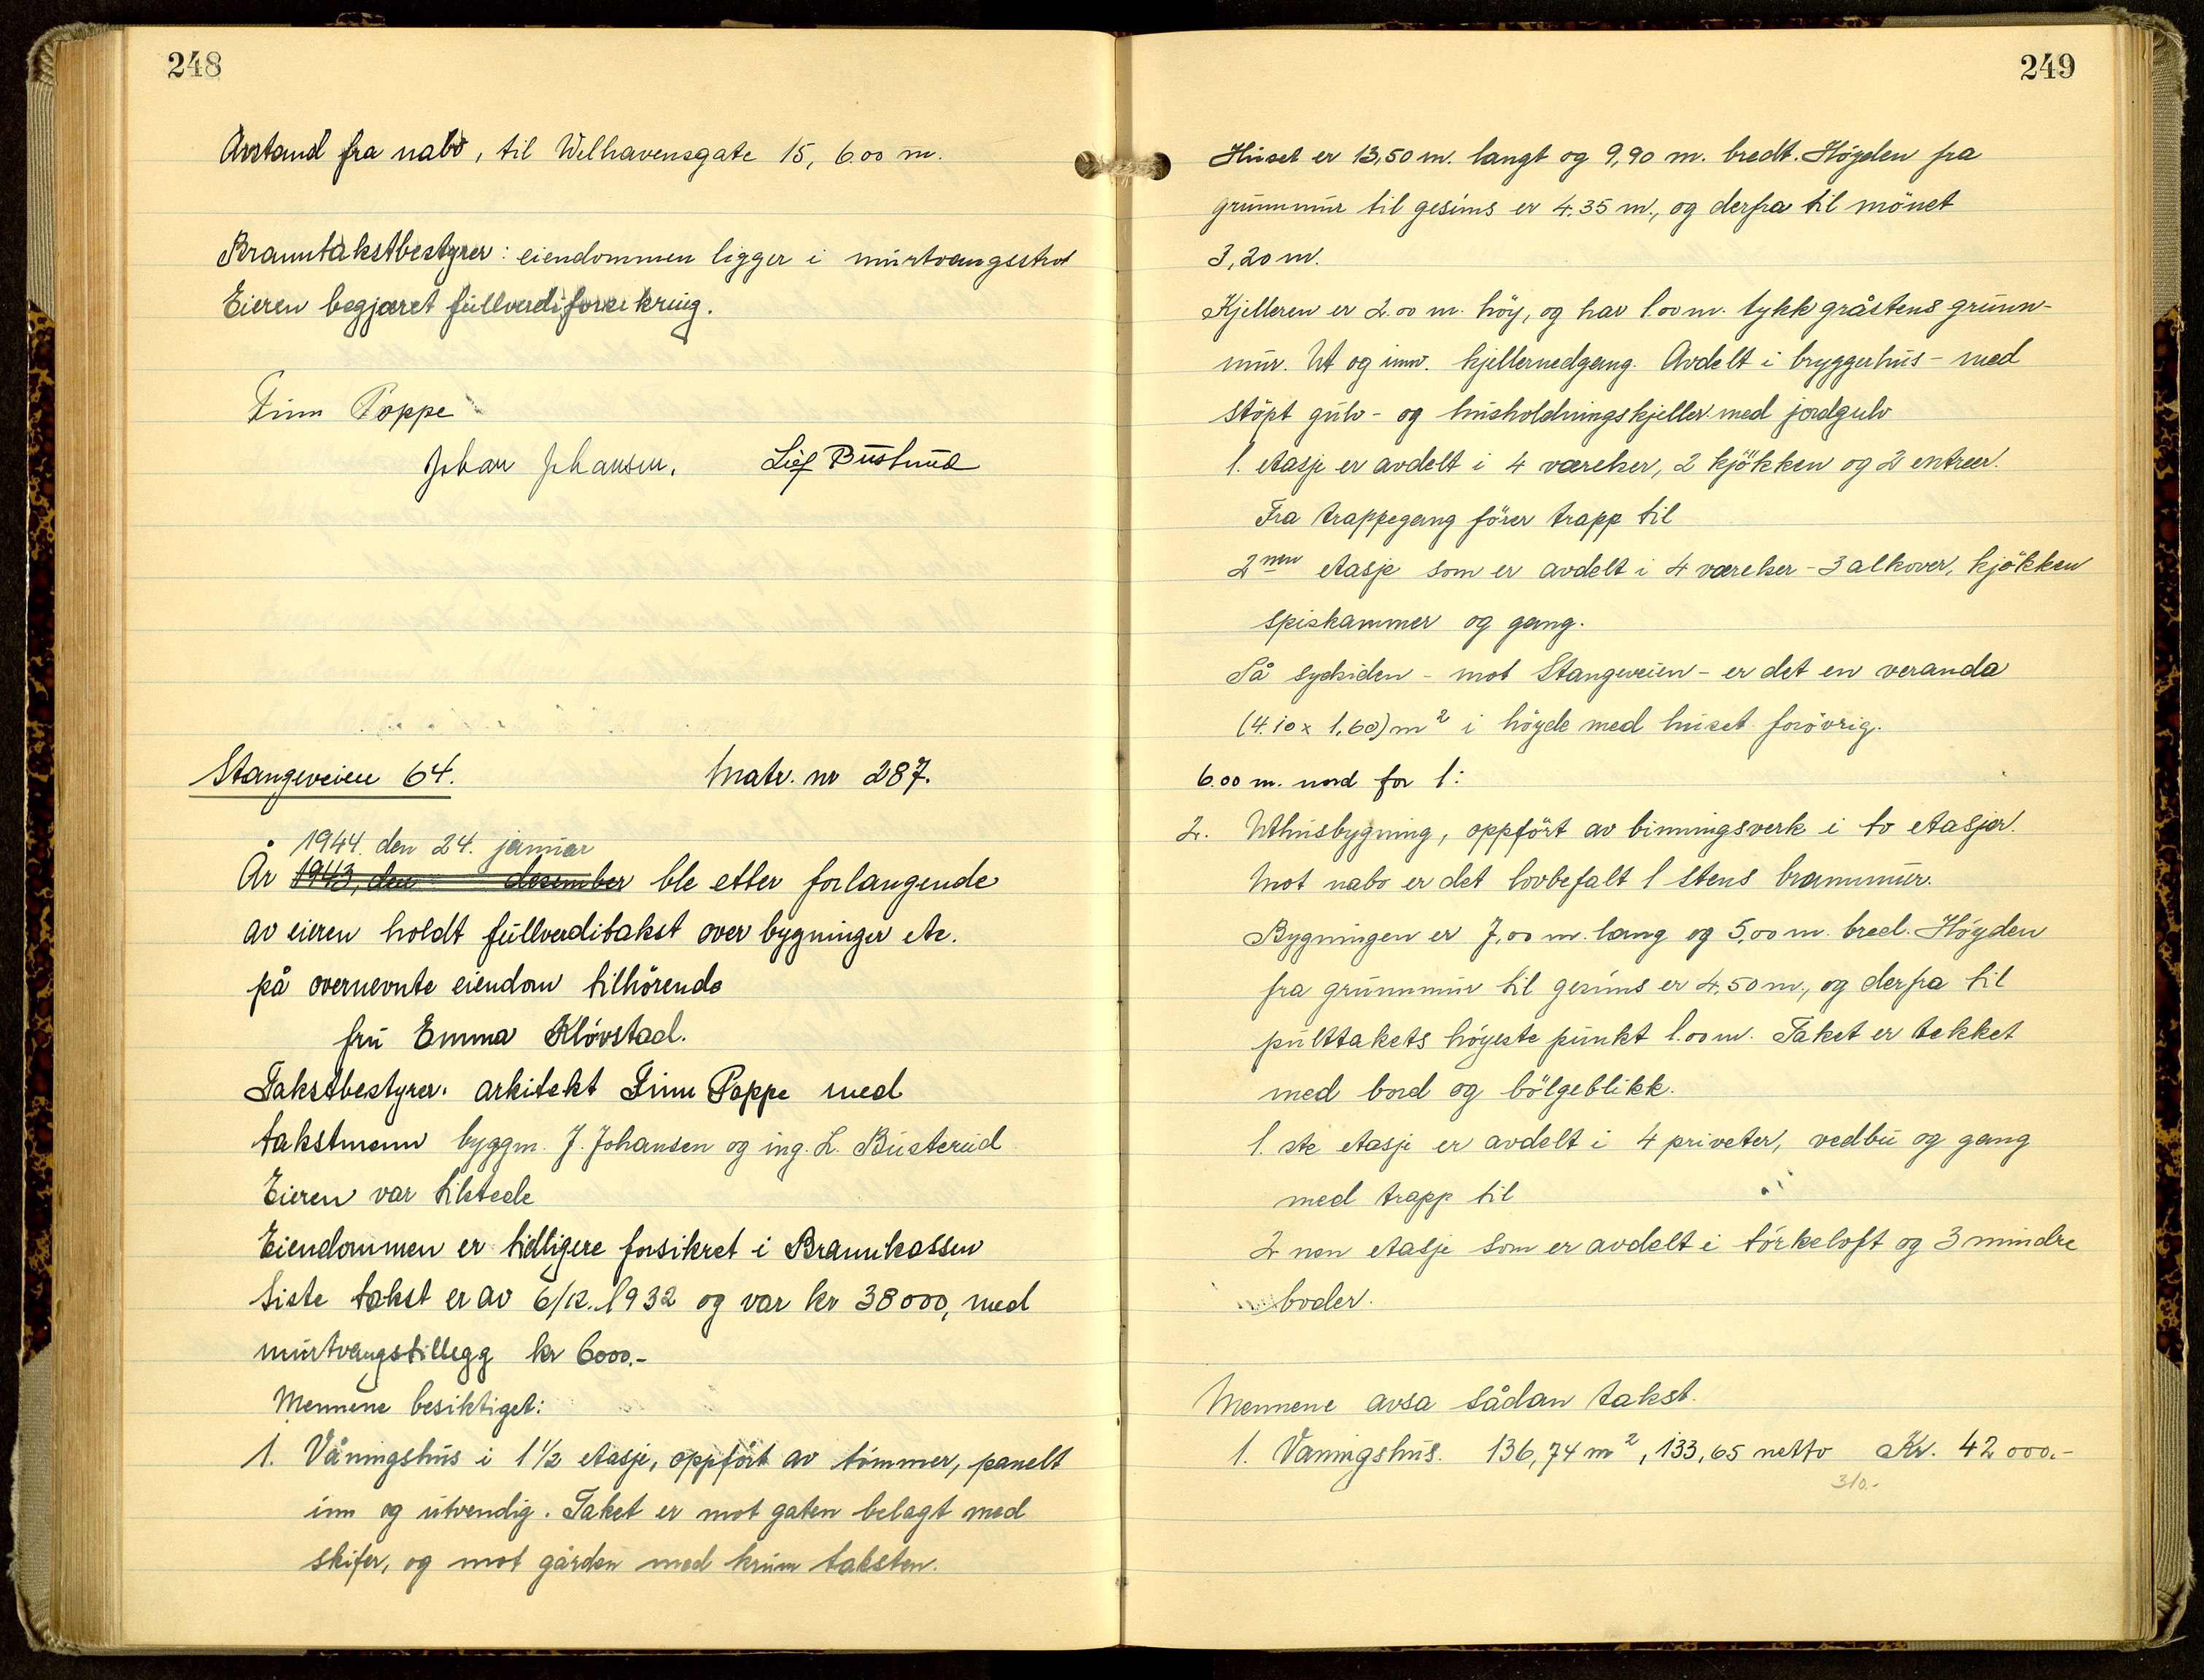 248
Avstand fra nabo, til Welhavensgate 15, 6.00 m.
Branntakstbestyrer: eiendommen ligger i murtvangsstrøk
Eieren begjæret fullverdiforsikring.
Finn Poppe
Johan Johansen. Leif Busterud
Stangeveien 64. Matr. nr 287.
1944. den 24. januar
År 1943, den desember ble etter forlangende
av eieren holdt fullverditakst over bygninger etc.
på overnevnte eiendom tilhörende
fru Emma Klövstad.
Takstbestyrer: arkitekt Finn Poppe med
takstmenn byggm. J. Johansen og ing. L. Busterud
Eieren var tilstede
Eiendommen er tidligere forsikret i Brannkassen
Siste takst er av 6/12. 1932 og var kr 38000, med
murtvangstillegg kr 6000.-
Mennene besiktiget:
1. Våningshus i 1 1/2 etasje, oppfört av tömmer, panelt
inn og utvendig. Taket er mot gaten belagt med
skifer, og mot gården med krum taksten.
249
Huset er 13,50 m. langt og 9,90 m. bredt. Höyden fra
grunnmur til gesims er 4.35 m., og derfra til mönet
3,20 m.
Kjelleren er 2.00 m. höy, og har 1.00 m. tykk gråstens grunn-
mur. Ut og innv. kjellernedgang. Avdelt i bryggerhus - med
stöpt gulv - og husholdningskjeller med jordgulv
1. etasje er avdelt i 4 værelser, 2 kjökken og 2 entreer.
Fra trappegang förer trapp til
2nen etasje som er avdelt i 4 værelser - 3 alkover, kjökken
spiskammer og gang.
På sydsiden - mot Stangeveien - er det en veranda
(4.10 x 1.60) m2 i höyde med huset forövrig.
6.00 m. nord for 1:
2. Uthusbygning, oppfört av binningsverk i to etasjer.
Mot nabo er det lovbefalt 1 stens brannmur.
Bygningen er 7,00 m. lang og 5,00 m. bred. Höyden
fra grunnmur til gesims er 4,50 m., og derfra til
pulttakets höyeste punkt 1.00 m. Taket er tekket
med bord og bölgeblikk.
1. ste etasje er avdelt i 4 priveter, vedbu og gang
med trapp til
2 nen etasje som er avdelt i törkeloft og 3 mindre
boder.
Mennene avsa sådan takst.
1. Vaningshus. 136,74 m2, 133,65 netto Kr. 42 000.-
310.-